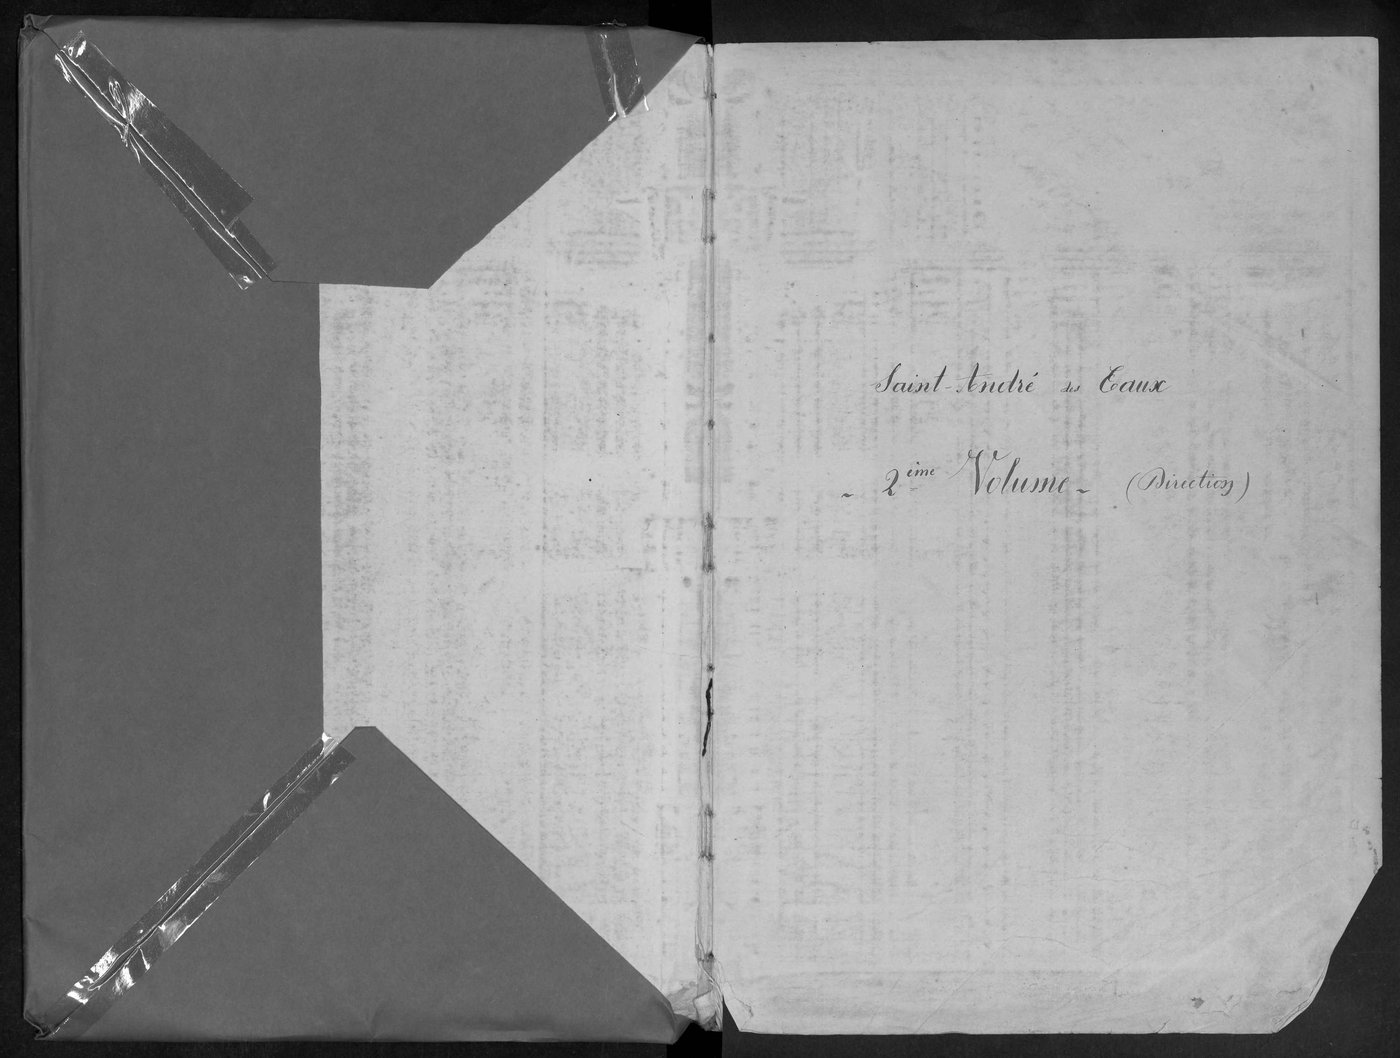 Saint-André des Eaux
- 2ème Volume - (Direction)